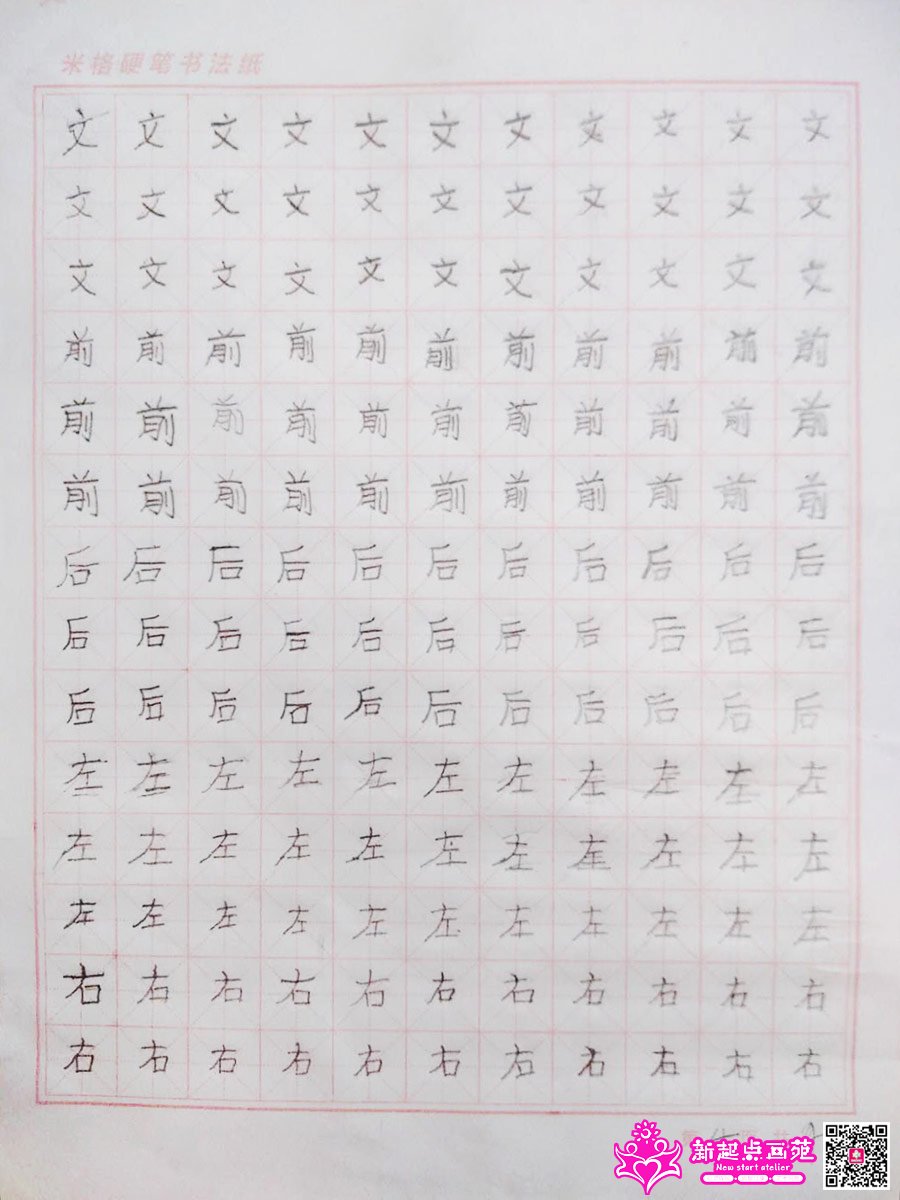 米格硬笔书法纸
文文文文文文文文文文文
文文文文文文文文文文文
文文文文文文文文文文文
前前前前前前前前前前前
前前前前前前前前前前前
前前前前前前前前前前前
后后后后后后后后后后后
后后后后后后后后后后后
后后后后后后后后后后后
左左左左左左左左左左左
左左左左左左左左左左左
左左左左左左左左左左左
右右右右右右右右右右右
右右右右右右右右右右右
新起点画苑
New start atelier